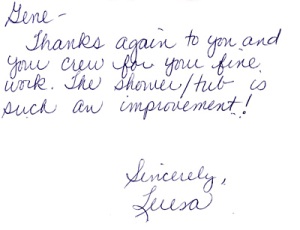 Gene-
Thanks again to you and
your crew for your fine
work. The shower/tub is
such an improvement!
Sincerely,
Teresa